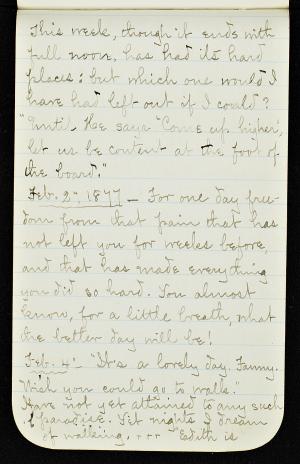 This week, though it ends with
full moon, has had its hard
places: but which one would I
have had left out if I could?
"Until He says 'Come up higher',
let us be content at the foot of
the board."
Feb. 2", 1877 — For one day free-
dom from that pain that has
not left you for weeks before,
and that has made everything
you did so hard. You almost
know, for a little breath, what
the better day will be!
Feb. 4" - "It's a lovely day, Fanny.
Wish you could go to walk."
Have not yet attained to any such
paradise. Yet nights I dream
of walking, --- Edith is